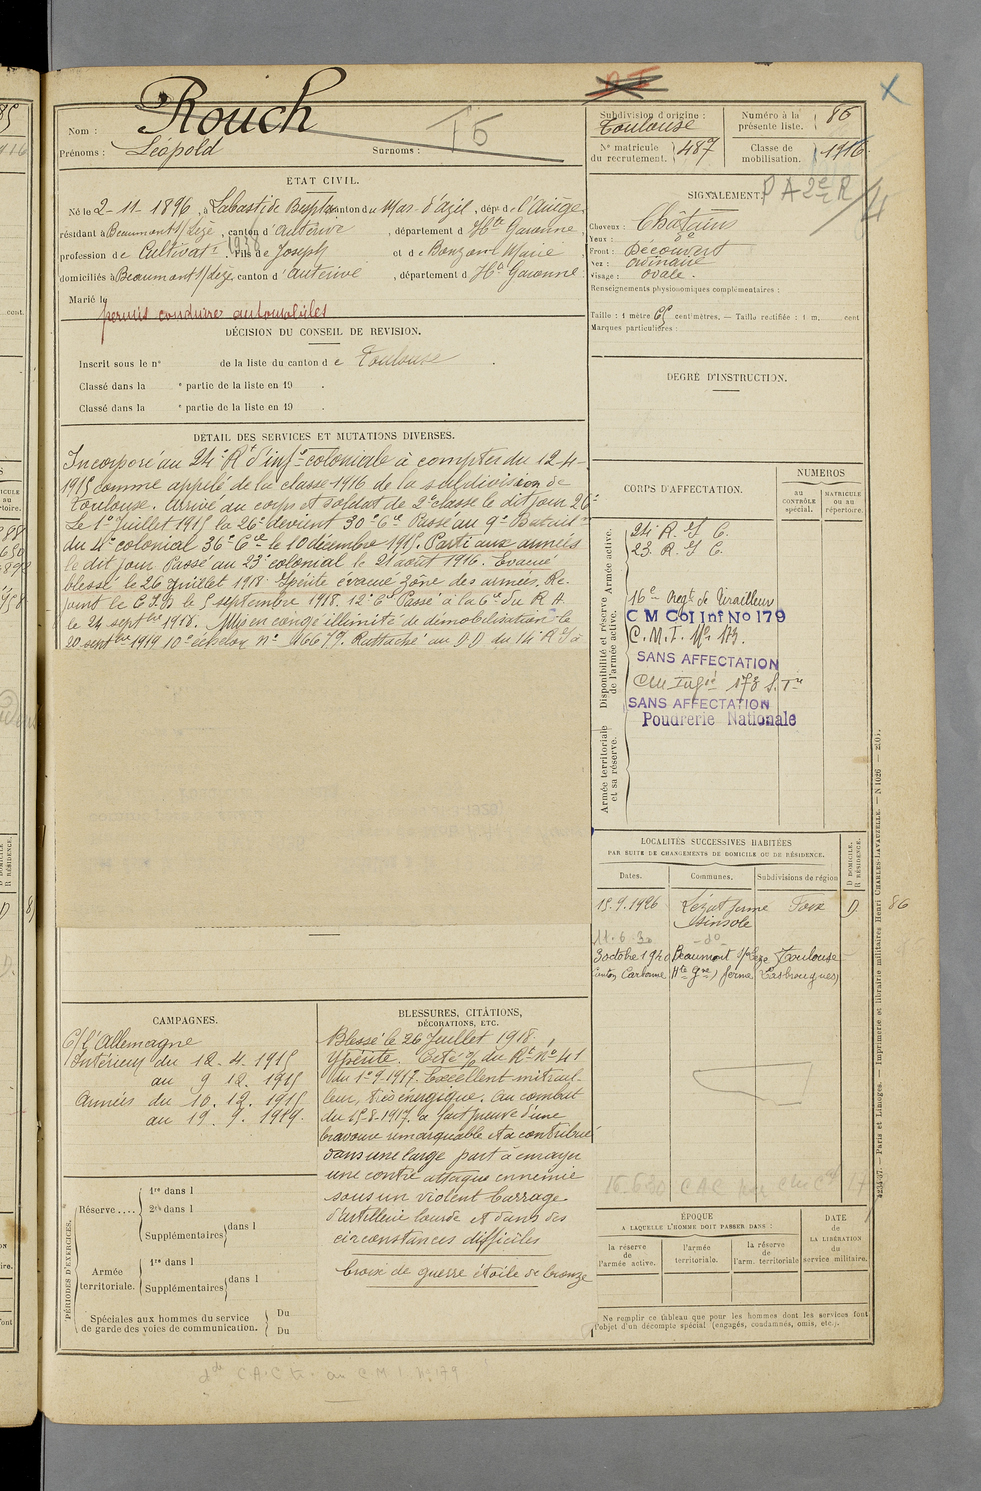 Nom : Rouch
Prénoms : Léopold Surnoms : 15
ETAT CIVIL.
Né le 2-11-1896, à Labastide canton du Mas-d'Azil, dépt de l'Ariège
résidant à Beaumont s/Lèze, canton d'Auterive, département d Hte Garonne
profession de Cultivatr 1938, fils de Joseph et de Marie
domiciliés à Beaumont s/Lèze, canton d'Auterive, département d Hte Garonne
Marié le
permis conduire automobiles
DÉCISION DU CONSEIL DE REVISION.
Inscrit sous le n° de la liste du canton de Toulouse.
Classé dans la e partie de la liste en 19 .
Classé dans la e partie de la liste en 19 .
DETAIL DES SERVICES ET MUTATIONS DIVERSES.
Incorporé au 24e Rt d'infie coloniale à compter du 12-4-
1915 comme appelé de la classe 1916 de la subdivision de
Toulouse. Arrivé au corps et soldat de 2e classe le dit jour 26e
Le 1er Juillet 1915 la 26e devient 30e Cie Passé au 9e Batailn
du 4e colonial 36e Cie le 10 décembre 1915. Parti aux armées
le dit jour Passé au 23e colonial le 21 août 1916. Evacué
blessé le 26 Juillet 1918. Ypérite évacué zône des armées. Re-
joint le C I D le 5 septembre 1918. 12e Cie Passé à la 6e du R A
le 24 septbre 1918. Mis en congé illimité de démobilisation le
20 septbre 1919 10e échelon No Rattaché au D D du 14 R I à
CAMPAGNES.
C/ l'Allemagne
Intérieur du 12. 4. 1915
au 9 12. 1915
Armées du 10. 12. 1915
au 19. 9. 1919.
PÉRIODES D'EXERCICES.
Réserve....
1re dans l
2e dans l
Supplémentaires dans l
Armée territoriale.
1re dans l
Supplémentaires dans l
Spéciales aux hommes du service
de garde des voies de communication.
Du
Du
BLESSURES, CITATIONS,
DÉCORATIONS, ETC.
Blessé le 26 Juillet 1918.
Ypérite. Cité O/ du Rt No 41
du 1er 9-1917. Excellent mitrail-
leur, très énergique. Au combat
du 15-8-1917. a fait preuve d'une
bravoure remarquable et a contribué
dans une large part à enrayer
une contre attaque ennemie
sous un violent barrage
d'artillerie lourde et dans des
circonstances difficiles
Croix de guerre étoile de bronze
Subdivision d'origine :
Toulouse
Numéro à la
présente liste. 86
N° matricule
du recrutement. 487
Classe de
mobilisation. 1916
SIGNALEMENT.
P A 2e R
/4
Cheveux : Châtain
Yeux : do
Front : Découvert
Nez : ordinaire
Visage : ovale.
Renseignements physionomiques complémentaires :
Taille : 1 mètre 65 centimètres. — Taille rectifiée : 1 m. cent
Marques particulières :
DEGRÉ D'INSTRUCTION.
CORPS D'AFFECTATION.
NUMEROS
au
CONTRÔLE
spécial.
MATRICULE
ou au
répertoire.
Armée active.
24 R. I C.
23. R. I C.
Disponibilité et réserve
de l'armée active.
16e Regt de Tirailleurs
C M Col Inf No 179
C. M. I. No 179.
SANS AFFECTATION
SANS AFFECTATION
Poudrerie Nationale
Armée territoriale
et sa réserve.
LOCALITÉS SUCCESSIVES HABITÉES
PAR SUITE DE CHANGEMENTS DE DOMICILE OU DE RÉSIDENCE.
Dates.
Communes.
Subdivisions de région
D DOMICILE.
R RÉSIDENCE.
15.9.1926 Lézat ferme Foix D. 86
11.6.30 do
3 octobre 1940 Beaumont s/Lèze Toulouse
Canton Carbonne (Hte Gne) ferme
15.630 CAC
ÉPOQUE
A LAQUELLE L'HOMME DOIT PASSER DANS :
la réserve
de
l'armée active.
l'armée
territoriale.
la réserve
de
l'arm. territoriale
DATE
de
LA LIBÉRATION
du
service militaire.
Ne remplir ce tableau que pour les hommes dont les services font
l'objet d'un décompte spécial (engagés, condamnés, omis, etc.).
4234-37. — Paris et Limoges. — Imprimerie et librairie militaires Henri CHARLES-LAVAUZELLE. — N 1026
C A C au C M I No 179